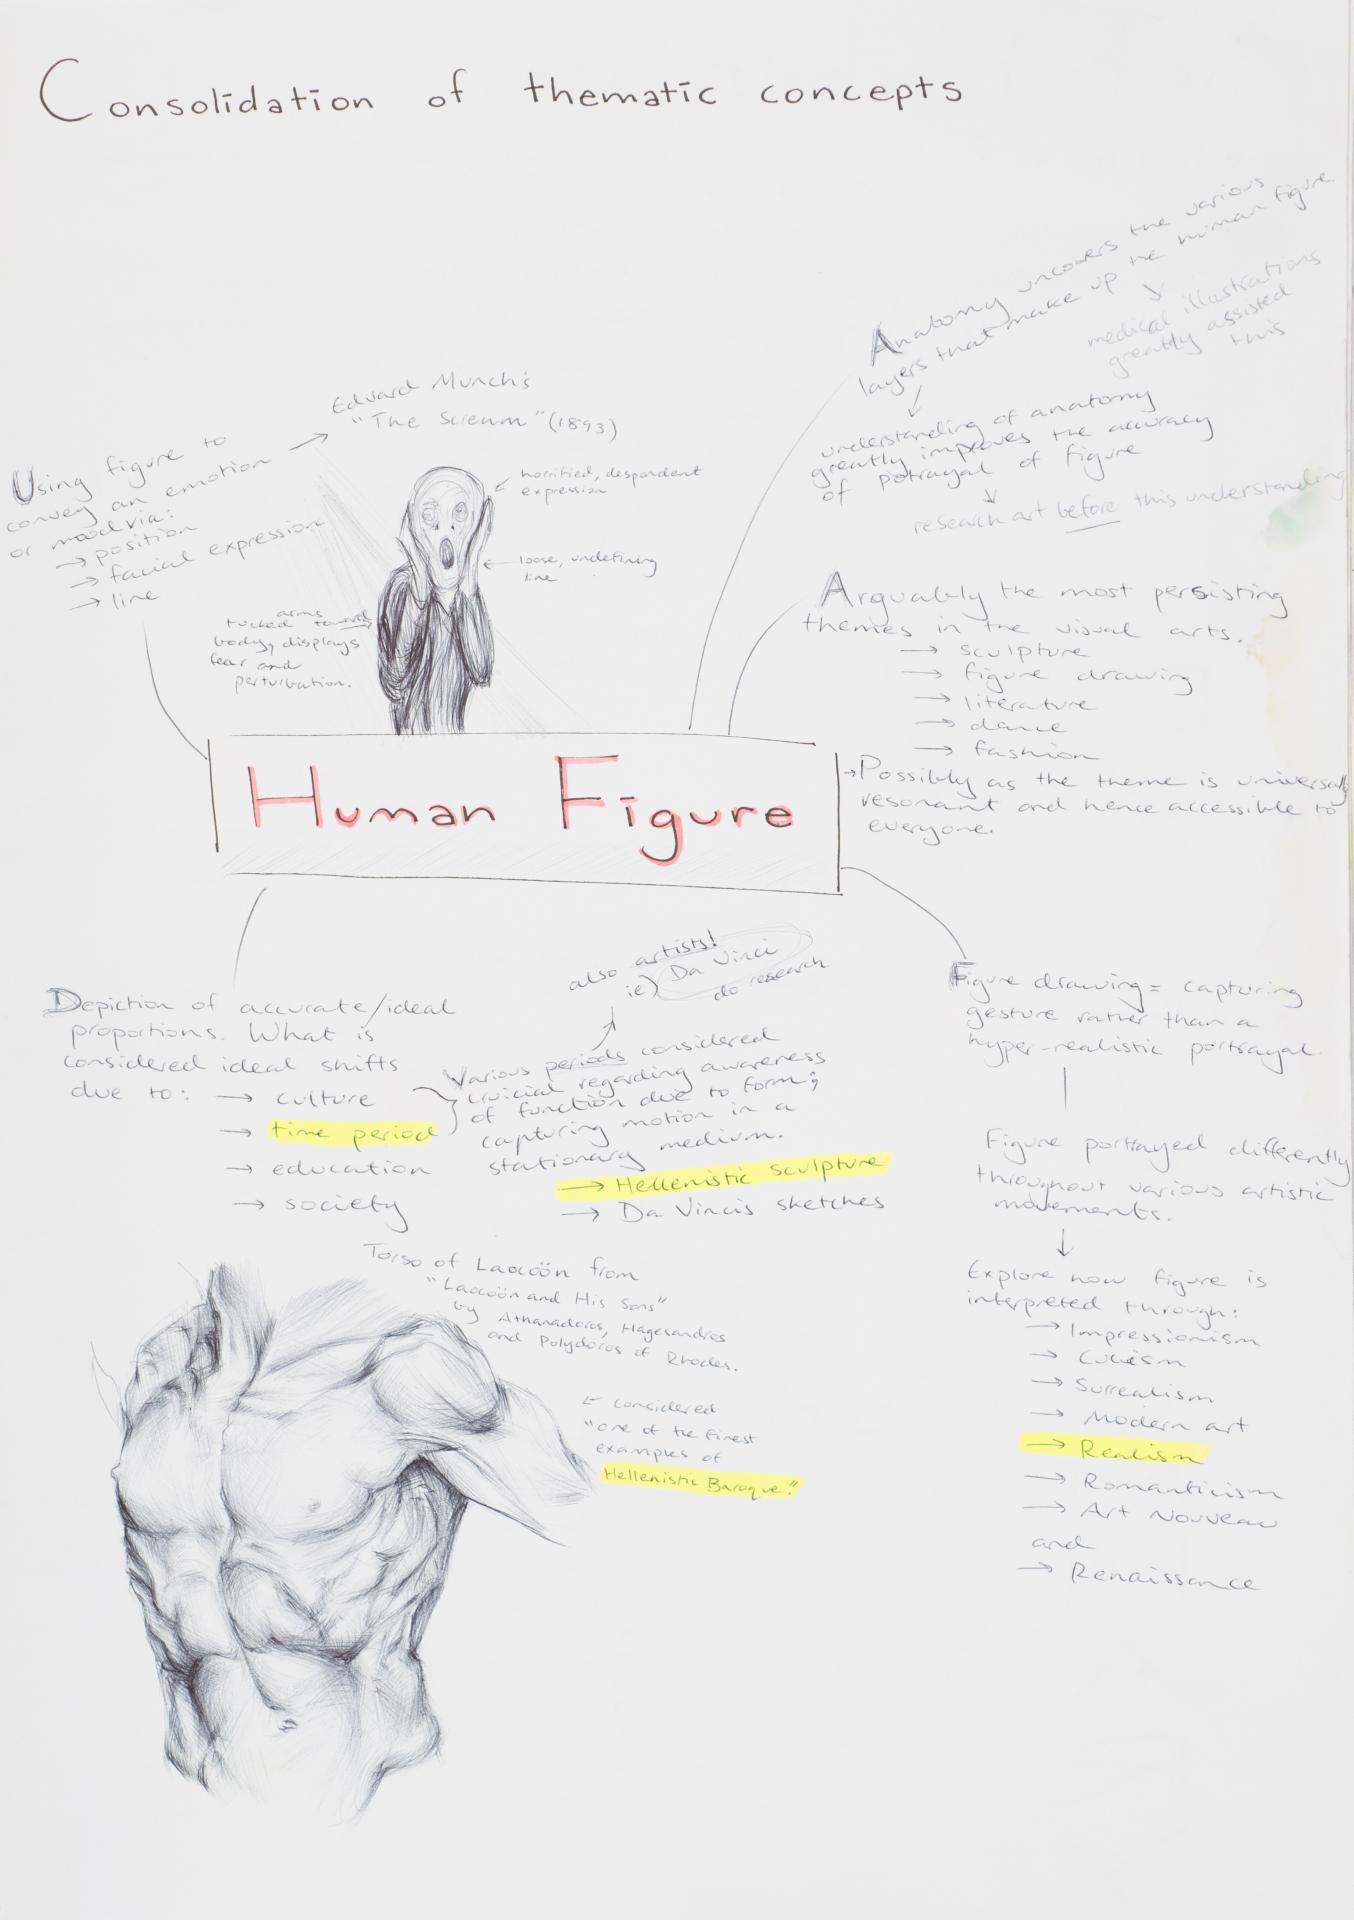 Consolidation of thematic concepts
Anatomy uncovers the various
layers that make up the human figure.
medical illustrations
greatly assisted
this
understanding of anatomy
greatly improves the accuracy
of potrayal of figure
research art before this understanding
Edvard Munch's
"The Scream" (1893)
Using figure to
convey an emotion
or mood via:
→ position
→ facial expression
→ line
horrified, despondent
expression
loose, undefining
line
arms
tucked toward
body, displays
fear and
perturbation.
Arguably the most persisting
themes in the visual arts.
→ sculpture
→ figure drawing
→ literature
→ dance
→ fashion
→ Possibly as the theme is universally
resonant and hence accessible to
everyone.
Human Figure
also artists!
ie) Da Vinci
do research
Depiction of accurate/ideal
proportions. What is
considered ideal shifts
due to: → culture
→ time period
→ education
→ society
Various periods considered
crucial regarding awareness
of function due to form;
capturing motion in a
stationary medium.
→ Hellenistic sculpture
→ Da Vincis sketches
Figure drawing = capturing
gesture rather than a
hyper-realistic portrayal.
Figure portrayed differently
throughout various artistic
movements.
Explore how figure is
interpreted through:
→ Impressionism
→ Cubism
→ Surrealism
→ Modern art
→ Realism
→ Romanticism
→ Art Nouveau
and
→ Renaissance
Torso of Laocöön from
"Laocöön and His Sons"
by Athanadoros, Hagesandros
and Polydoros of Rhodes.
← considered
"one of the finest
examples of
Hellenistic Baroque."